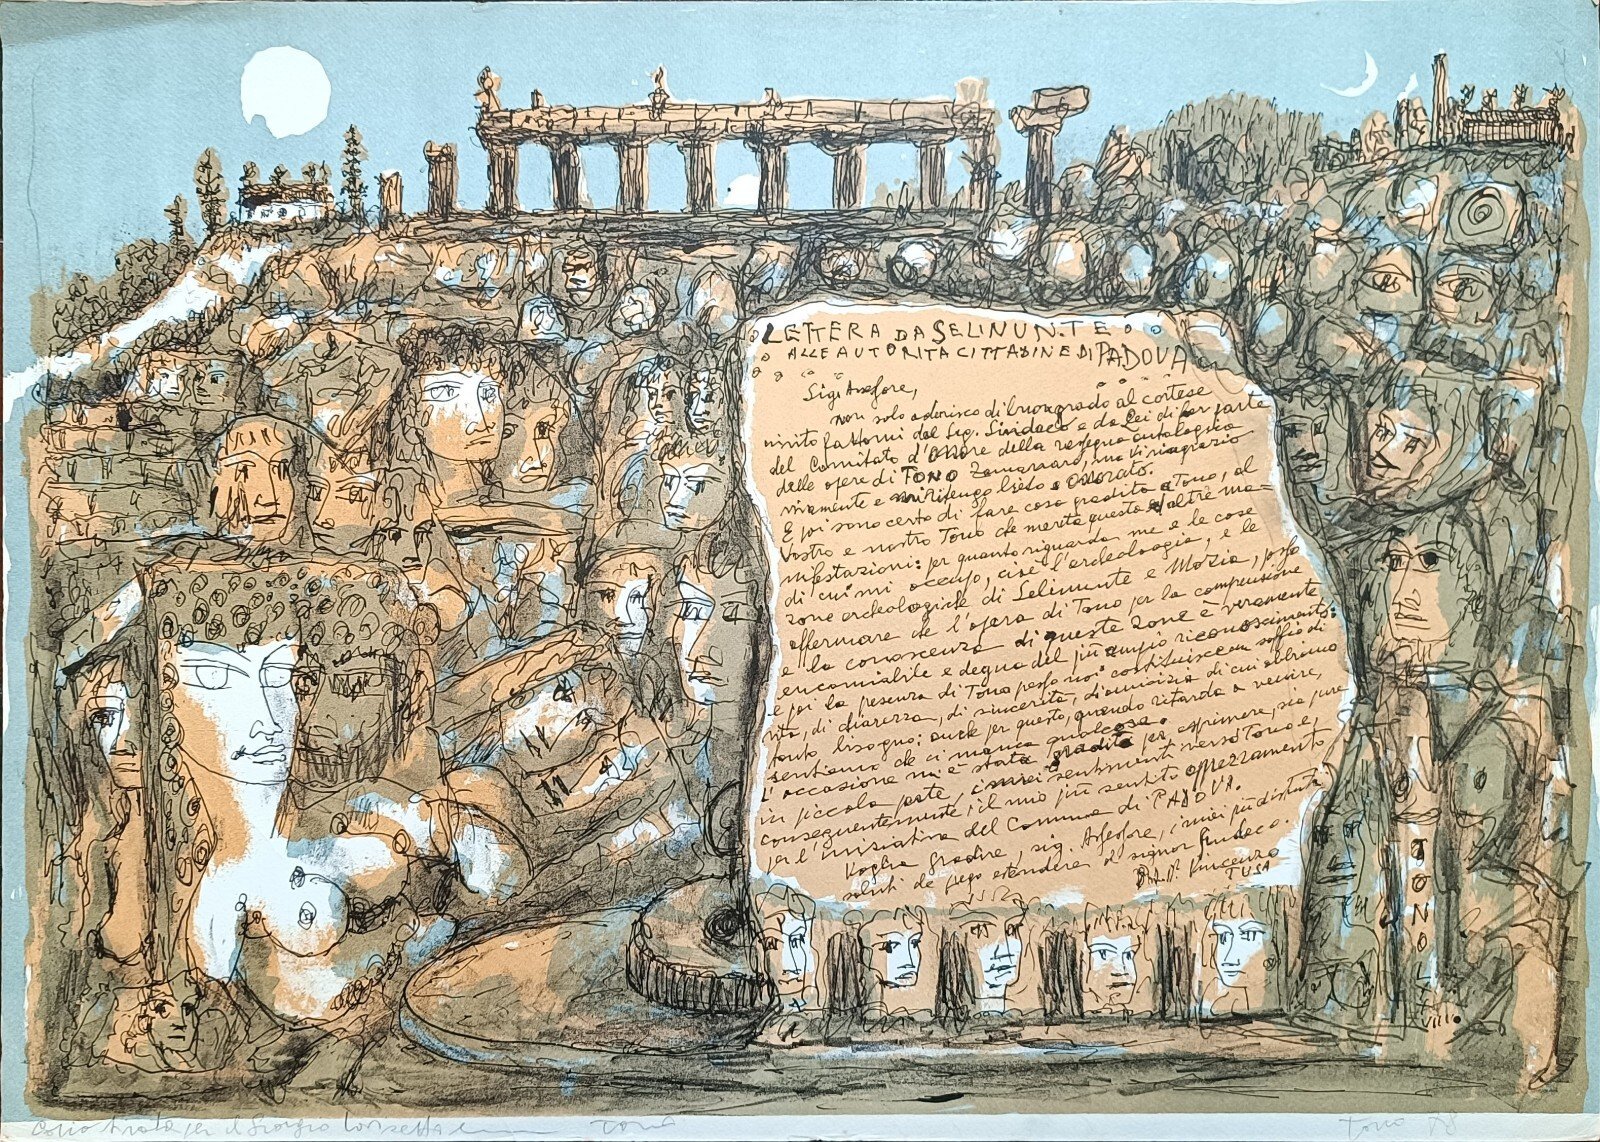 LETTERA DA SELINUNTE
ALLE AUTORITA CITTADINE DI PADOVA
Sig. Assessore,
non solo aderisco di buon grado al cortese
invito fattomi dal Sig. Sindaco e da Lei di far parte
del Comitato d'Onore della rassegna antologica
delle opere di TONO Zancanaro, ma vi ringrazio
vivamente e mi ritengo lieto e onorato.
E poi sono certo di fare cosa gradita a Tono, al
vostro e nostro Tono che merita questa ed altre ma-
nifestazioni: per quanto riguarda me e le cose
di cui mi occupo, cioè l'archeologia, e le
zone archeologiche di Selinunte e Mozia, posso
affermare che l'opera di Tono per la comprensione
e la conoscenza di queste zone è veramente
encomiabile e degna del più ampio riconoscimento:
e poi la presenza di Tono presso noi costituisce un soffio di
vita, di chiarezza, di sincerità, di amicizia di cui abbiamo
tanto bisogno: anche per questo, quando ritarda a venire,
sentiamo che ci manca qualcosa.
L'occasione mi è stata gradita per esprimere, sia pure
in piccola parte, i miei sentimenti verso Tono e,
conseguentemente, il mio più sentito apprezzamento
per l'iniziativa del Comune di PADOVA.
Voglia gradire, sig. Assessore, i miei più distinti
saluti che prego estendere al signor Sindaco.
Vincenzo
TUSA
TONO
Copia tirata per il Giorgio Tono
Tono 78